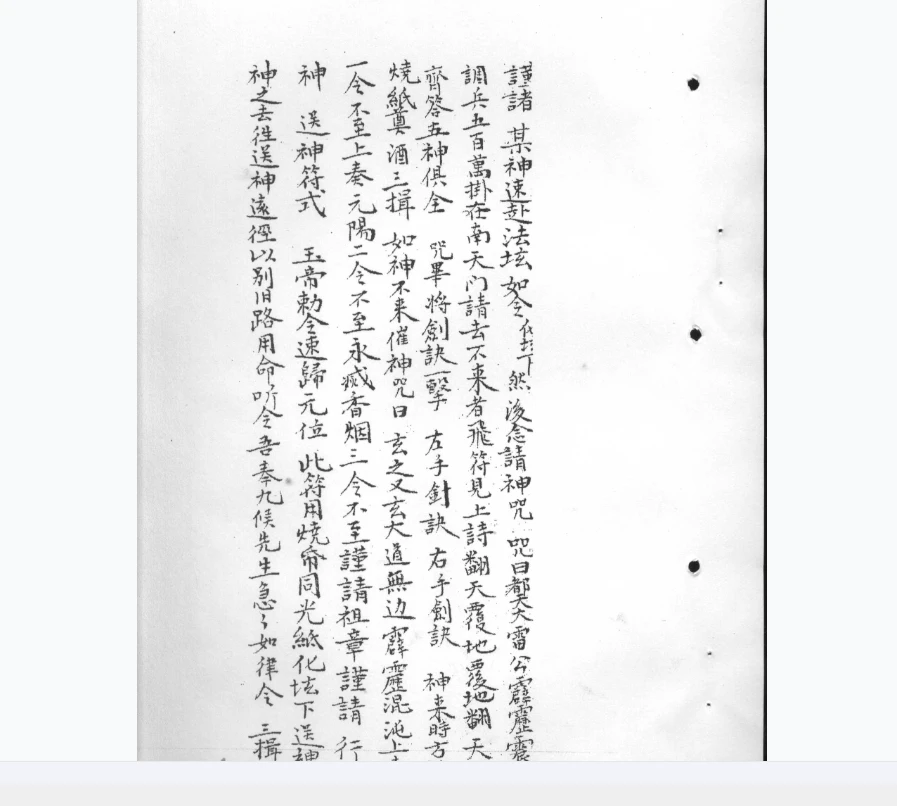 謹諸 某神速赴法坛 如令 然後念請神咒 咒曰都天大雷公霹靂震
調兵五百萬掛在南天门請去不来者飛符見上詩翻天覆地覆地翻天
齊答五神俱全 咒畢将劍訣一擊 左手針訣 右手劍訣 神来時方
燒紙奠酒三揖 如神不来催神咒曰 玄之又玄大道無边霹靂混沌上
一令不至上奏元陽二令不至永滅香烟三令不至謹請祖章謹請 行
神 送神符式 玉帝勅令速歸元位 此符用燒帋同光紙化坛下送神
神之去徃送神遠徑以别旧路用命听令吾奉九候先生急〻如律令 三揖